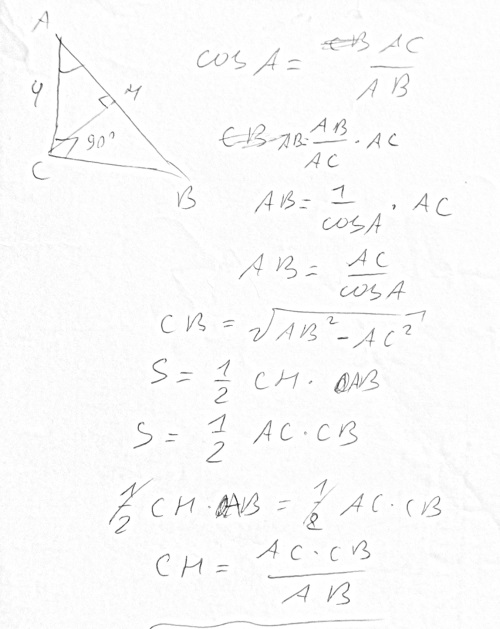 A
4
H
90°
C
B
cos A = AC / AB
AB = AB / AC · AC
AB = 1 / cosA · AC
AB = AC / cosA
CB = √(AB² - AC²)
S = 1/2 CH · AB
S = 1/2 AC · CB
1/2 CH · AB = 1/2 AC · CB
CH = AC · CB / AB